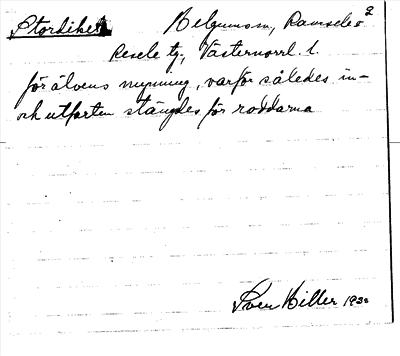 Stordiket Helgumsn, Ramsele s 2
Resele tg, Västernorrl. l.
för älvens mynning, varför således in-
och utfarten stängdes för roddarna
Sven Hiller 193